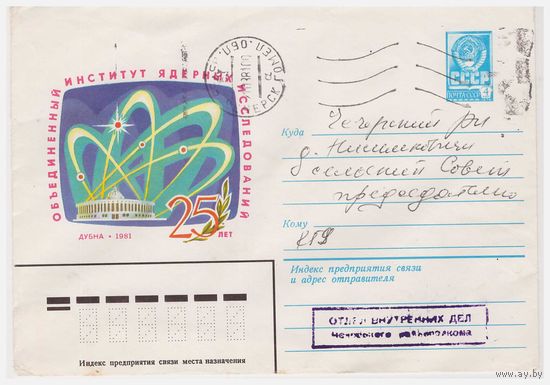 ОБЪЕДИНЕННЫЙ ИНСТИТУТ ЯДЕРНЫХ ИССЛЕДОВАНИЙ
25 ЛЕТ
ДУБНА • 1981
ГОМЕЛ. ОБЛ.
СССР
ПОЧТА СССР 4
Куда
Чечерский р-н
д. Нисимковичи
сельский Совет
председателю
Кому
Индекс предприятия связи
и адрес отправителя
ОТДЕЛ ВНУТРЕННИХ ДЕЛ
Чечерского райисполкома
Индекс предприятия связи места назначения
www.ay.by